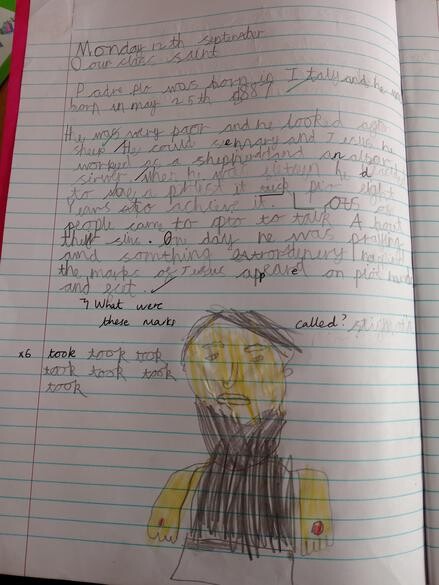 Monday 12th september
O our class saint
Padre pio was born in Italy and he was
born in may 25th 1887.
He was very poor and he looked after
sheep. He could see mary and Jesus he
worked as a shepherd and an altar
server. when he was he d
to be a priest it tuck pio eight
years to achieve it. Lots of
people came to pio to talk A bout
their sins. One day he was praying
and somthing extrordenery happend
the marks of Jesus appeared on pios hands
and feet.
What were
these marks called? stigmata
x6 took took took took
took took took
took